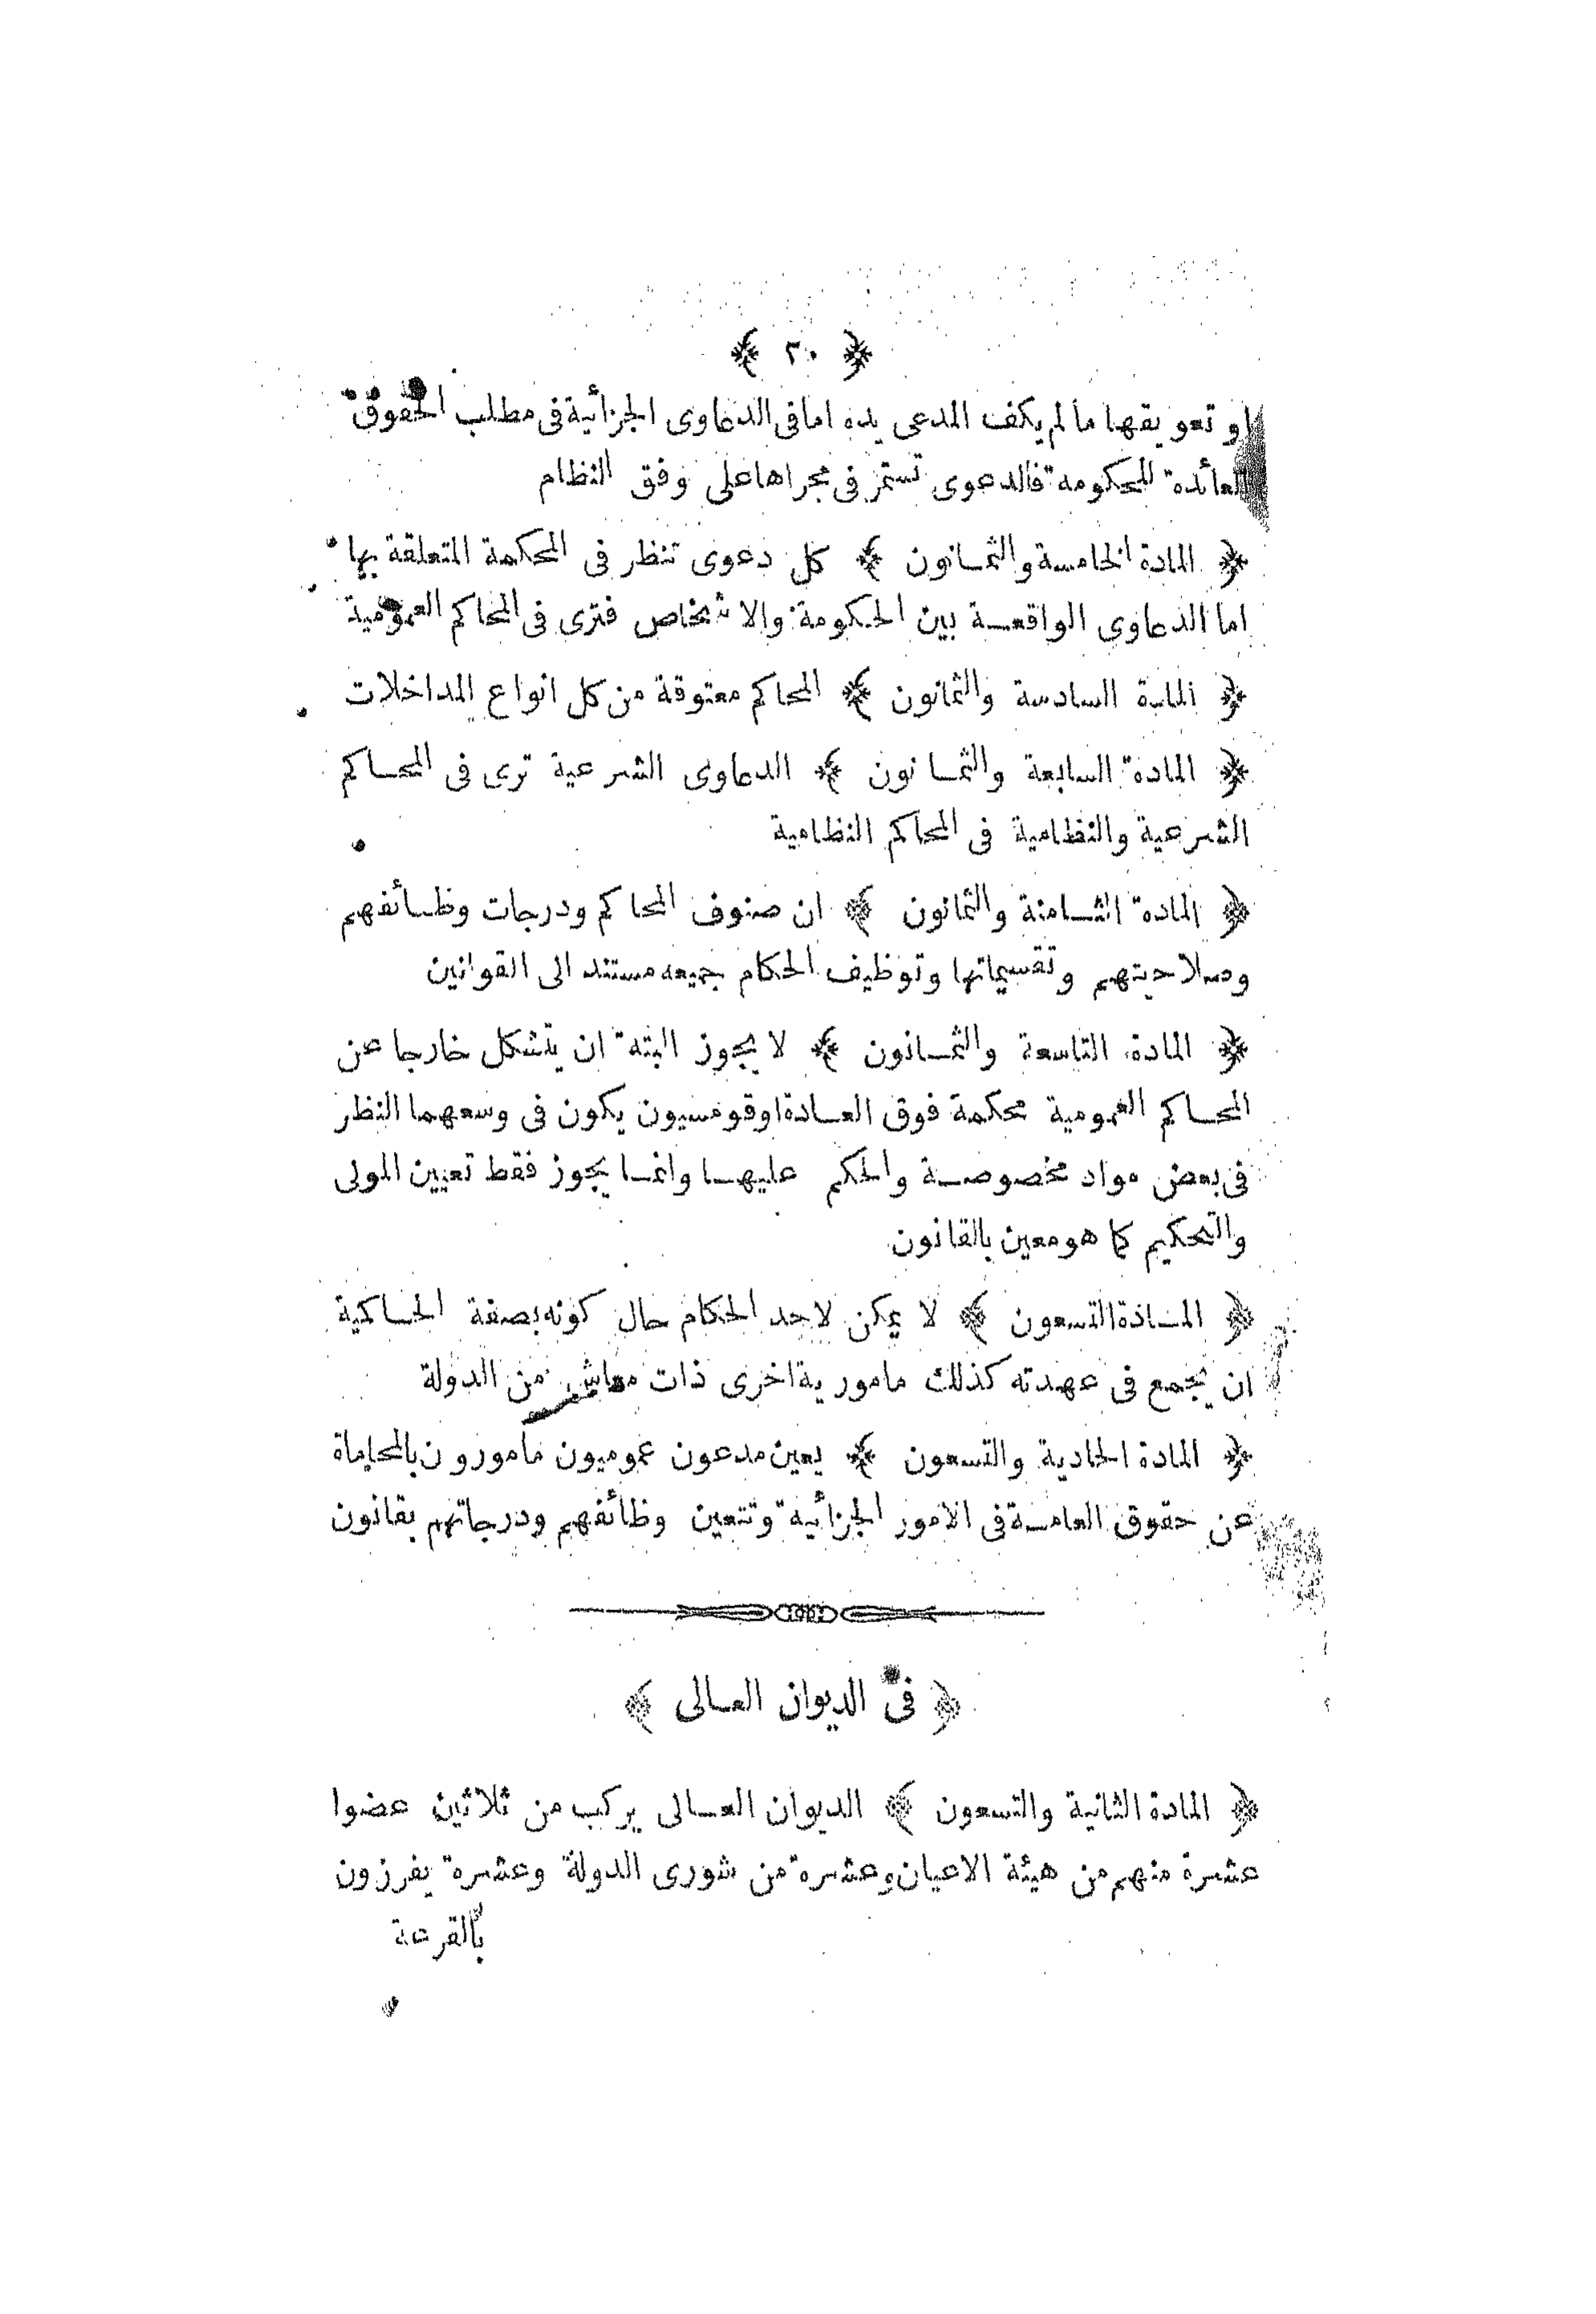 ﴿ ٢٠ ﴾
او تعويقها مالم يكف المدعى يده اما فى الدعاوى الجزائية فى مطلب الحقوق
العائدة للحكومة فالدعوى تستمر فى مجراها على وفق النظام
﴿ المادة الخامسة والثمانون ﴾ كل دعوى تنظر فى المحكمة المتعلقة بها
اما الدعاوى الواقعة بين الحكومة والاشخاص فترى فى المحاكم العمومية
﴿ المادة السادسة والثمانون ﴾ المحاكم معتوقة من كل انواع المداخلات
﴿ المادة السابعة والثمانون ﴾ الدعاوى الشرعية ترى فى المحاكم
الشرعية والنظامية فى المحاكم النظامية
﴿ المادة الثامنة والثمانون ﴾ ان صنوف المحاكم ودرجات وظائفهم
وصلاحيتهم وتقسيماتها وتوظيف الحكام جميعه مستند الى القوانين
﴿ المادة التاسعة والثمانون ﴾ لا يجوز البتة ان يتشكل خارجا عن
المحاكم العمومية محكمة فوق العادة اوقومسيون يكون فى وسعهما النظر
فى بعض مواد مخصوصة والحكم عليها وانما يجوز فقط تعيين المولى
والتحكيم كما هو معين بالقانون
﴿ المادة التسعون ﴾ لا يمكن لاحد الحكام حال كونه بصفة الحاكمية
ان يجمع فى عهدته كذلك مامورية اخرى ذات معاش من الدولة
﴿ المادة الحادية والتسعون ﴾ يعين مدعون عموميون مأمورون بالمحاماة
عن حقوق العامة فى الامور الجزائية وتتعين وظائفهم ودرجاتهم بقانون
﴿ فى الديوان العالى ﴾
﴿ المادة الثانية والتسعون ﴾ الديوان العالى يركب من ثلاثين عضوا
عشرة منهم من هيئة الاعيان وعشرة من شورى الدولة وعشرة يفرزون
بالقرعة